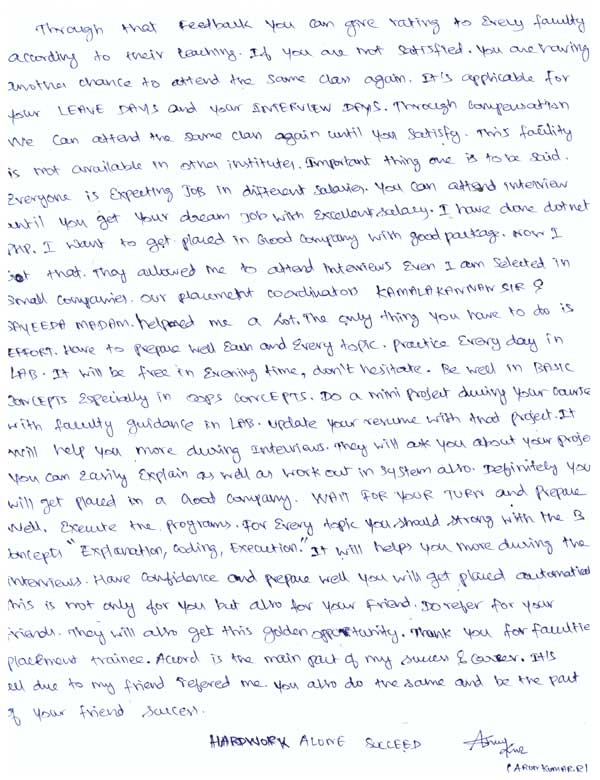 Through that Feedback you can give rating to Every faculty
according to their teaching. If you are not satisfied. You are having
another chance to attend the same class again. It's applicable for
your LEAVE DAYS and your INTERVIEW DAYS. Through Compensation
We can attend the same class again until you satisfy. This facility
is not available in other institutes. Important thing one is to be said.
Everyone is Expecting JOB in different salaries. You can attend interview
until you get your dream Job with Excellent salary. I have done dotnet
PHP. I want to get placed in Good Company with good package. Now I
got that. They allowed me to attend Interviews Even I am selected in
small companies. Our placement coordinators KAMALAKANNAN SIR &
SAYEEDA MADAM. helped me a lot. The only thing you have to do is
EFFORT. Have to prepare well Each and Every topic. practice Every day in
LAB. It will be free in Evening time, don't hesitate. Be well in BASIC
CONCEPTS Especially in OOPS CONCEPTS. Do a mini project during your course
with faculty guidance in LAB. update your resume with that project. It
will help you more during Interviews. They will ask you about your proje
You can Easily Explain as well as work out in system also. Definitely you
will get placed in a Good Company. WAIT FOR YOUR TURN and Prepare
Well. Execute the programs. For Every topic you should strong with the 3
oncepts "Explanation, Coding, Execution." It will helps you more during the
interviews. Have Confidence and prepare well you will get placed automatical
his is not only for you but also for your Friend. Do refer for your
friends. They will also get this golden opportunity. Thank you for facultie
placement trainee. Accord is the main part of my success & career. It's
all due to my friend refered me. You also do the same and be the part
of your friend success.
HARDWORK ALONE SUCCEED
(ARUN KUMAR.R)